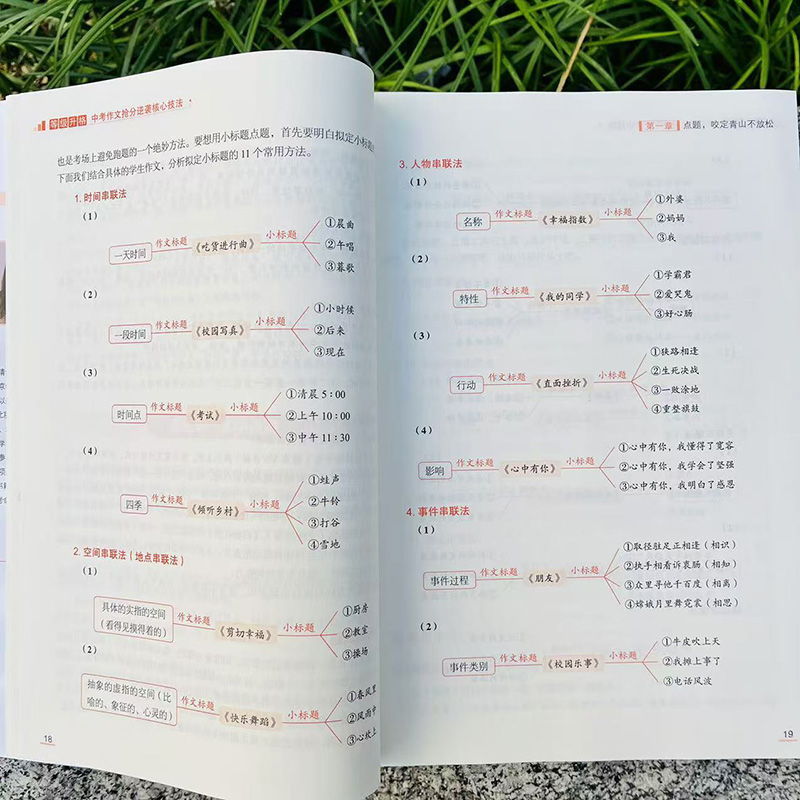 等级升格 中考作文抢分逆袭核心技法
也是考场上避免跑题的一个绝妙方法。要想用小标题点题，首先要明白拟定小标题
下面我们结合具体的学生作文，分析拟定小标题的 11 个常用方法。
1. 时间串联法
（1）
一天时间 作文标题 《吃货进行曲》 小标题
①晨曲
②午唱
③暮歌
（2）
一段时间 作文标题 《校园写真》 小标题
①小时候
②后来
③现在
（3）
时间点 作文标题 《考试》 小标题
①清晨 5：00
②上午 10：00
③中午 11：30
（4）
四季 作文标题 《倾听乡村》 小标题
①蛙声
②牛铃
③打谷
④雪地
2. 空间串联法（地点串联法）
（1）
具体的实指的空间
（看得见摸得着的）
作文标题 《剪切幸福》 小标题
①厨房
②教室
③操场
（2）
抽象的虚指的空间（比
喻的、象征的、心灵的）
作文标题 《快乐舞蹈》 小标题
①春风里
②风雨中
③心坎上
18
第一章 点题，咬定青山不放松
3. 人物串联法
（1）
名称 作文标题 《幸福指数》 小标题
①外婆
②妈妈
③我
（2）
特性 作文标题 《我的同学》 小标题
①学霸君
②爱哭鬼
③好心肠
（3）
行动 作文标题 《直面挫折》 小标题
①狭路相逢
②生死决战
③一败涂地
④重整旗鼓
（4）
影响 作文标题 《心中有你》 小标题
①心中有你，我懂得了宽容
②心中有你，我学会了坚强
③心中有你，我明白了感恩
4. 事件串联法
（1）
事件过程 作文标题 《朋友》 小标题
①取径驻足正相逢（相识）
②执手相看诉衷肠（相知）
③众里寻他千百度（相离）
④嫦娥月里舞霓裳（相思）
（2）
事件类别 作文标题 《校园乐事》 小标题
①牛皮吹上天
②我摊上事了
③电话风波
19